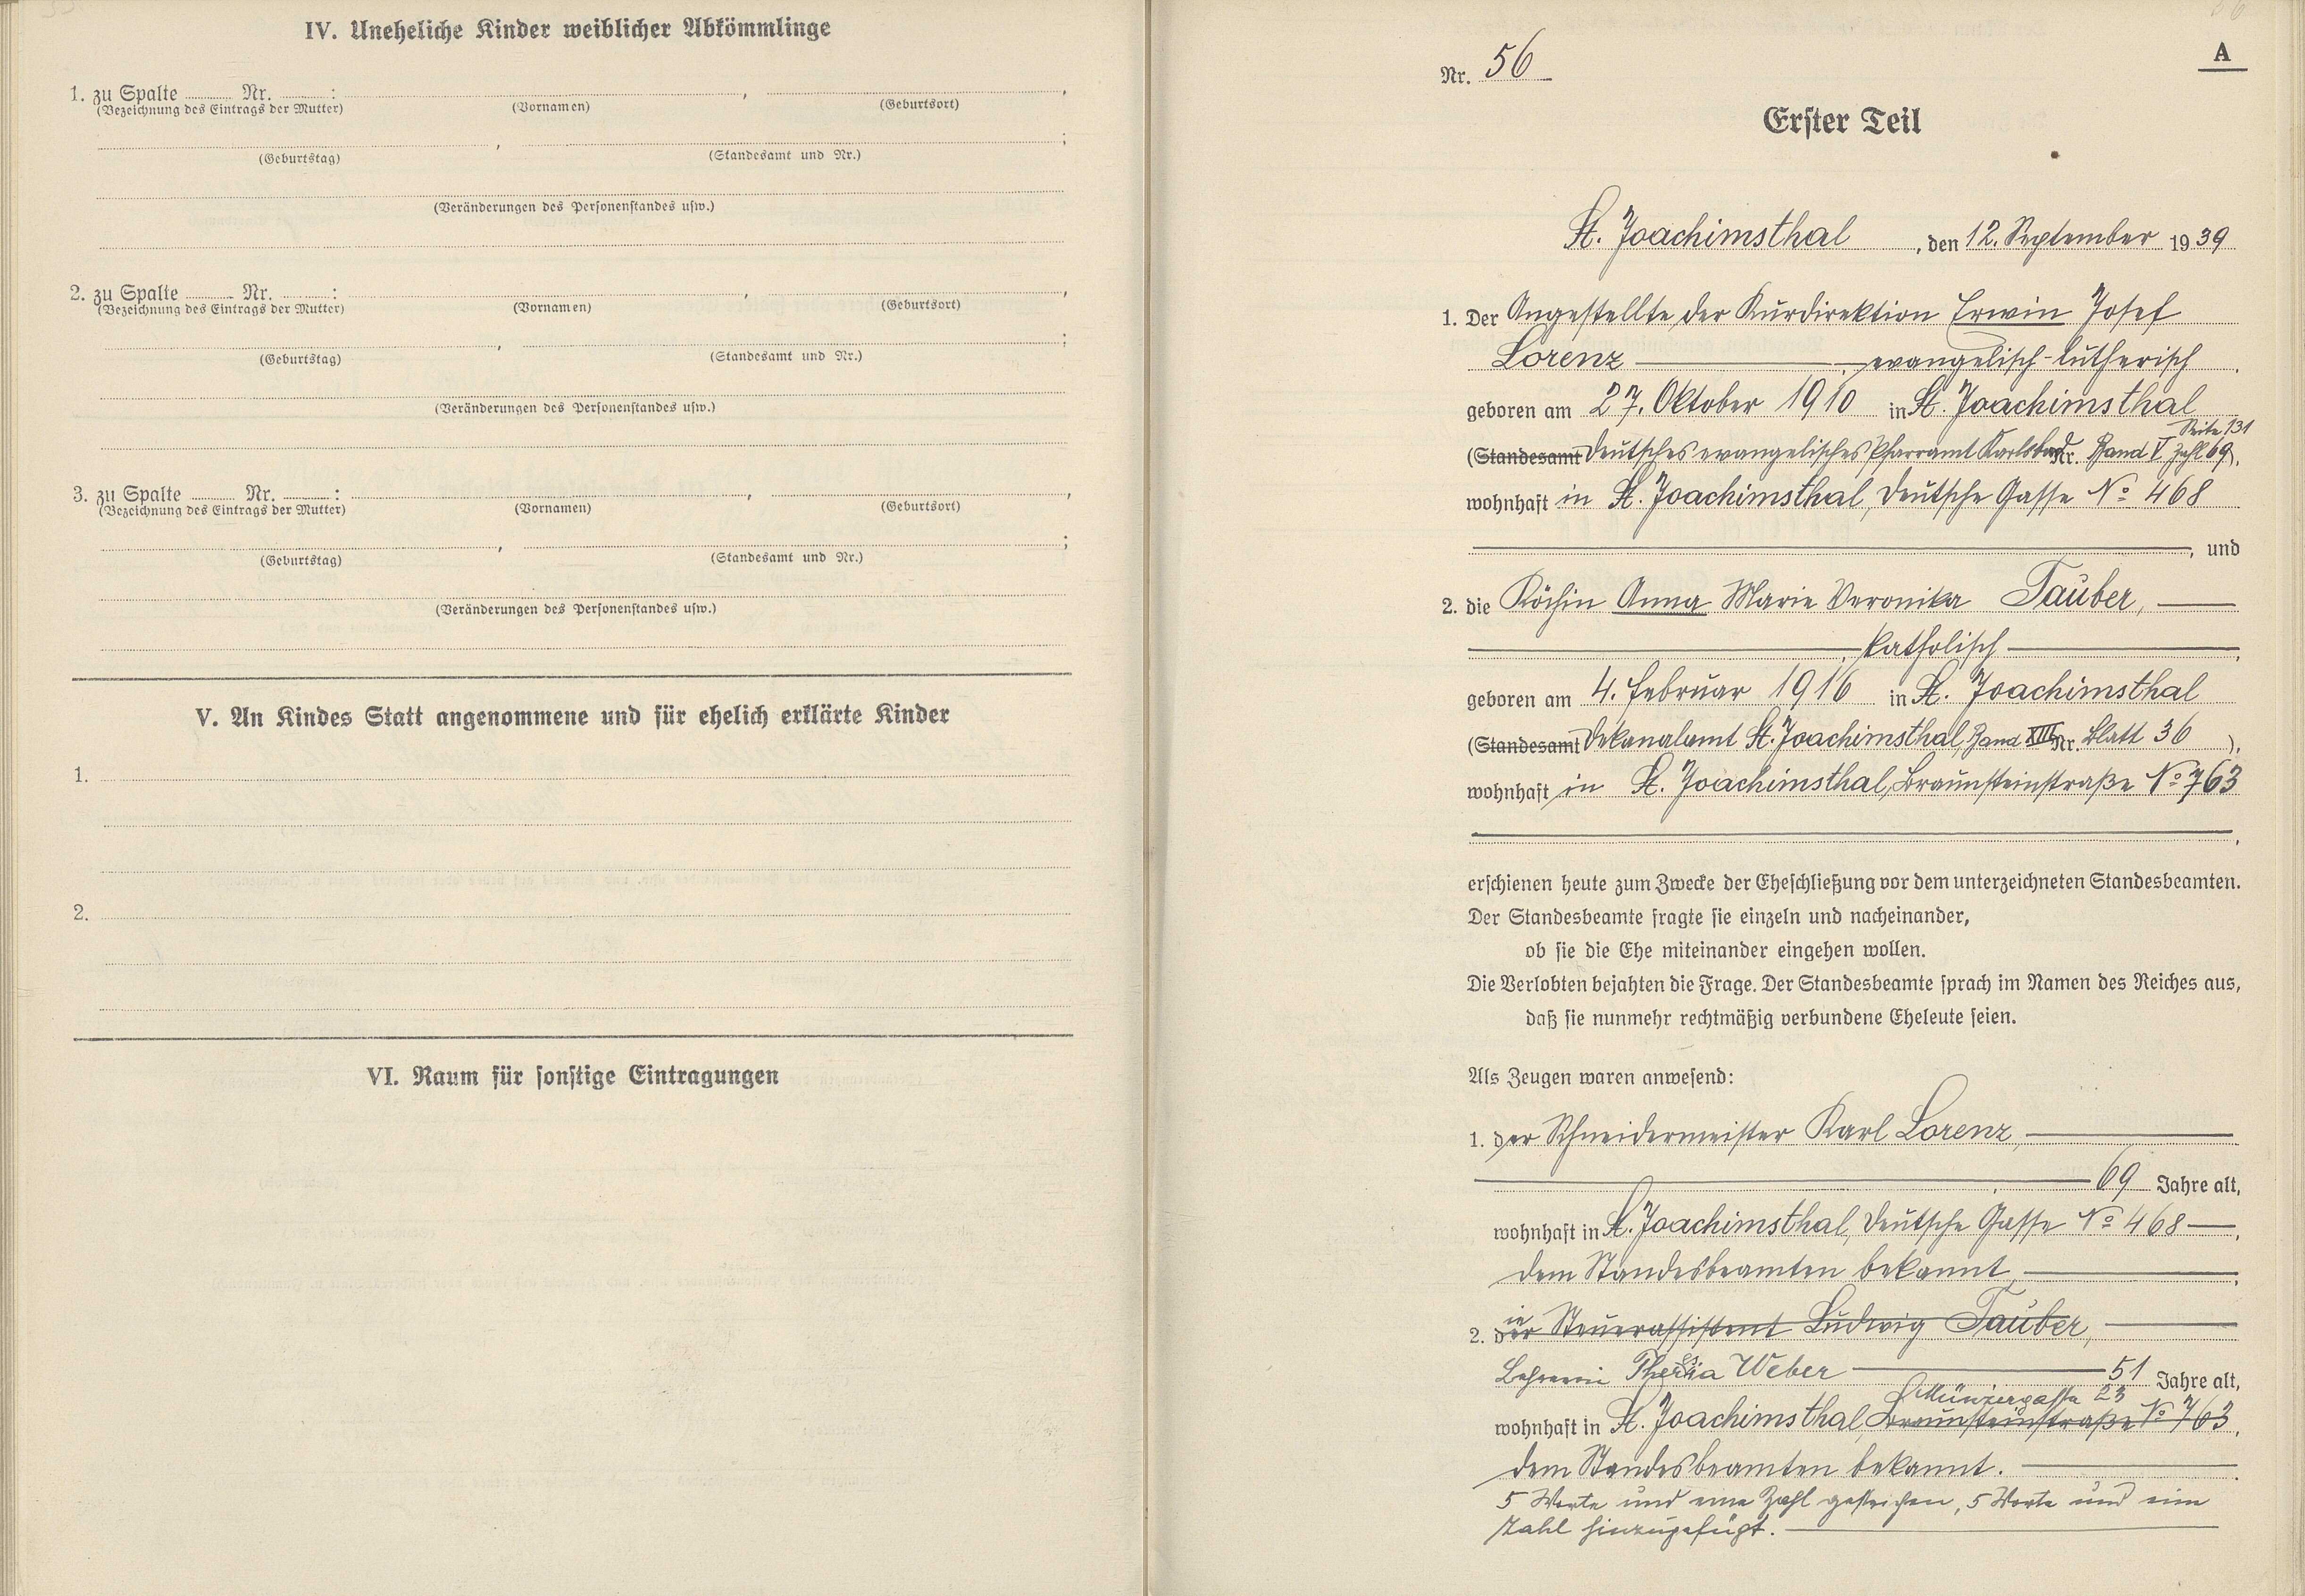 IV. Uneheliche Kinder weiblicher Abkömmlinge
1. zu Spalte ........ Nr. ........ : , ,
(Bezeichnung des Eintrags der Mutter) (Vornamen) (Geburtsort)
, ;
(Geburtstag) (Standesamt und Nr.)
(Veränderungen des Personenstandes usw.)
2. zu Spalte ........ Nr. ........ : , ,
(Bezeichnung des Eintrags der Mutter) (Vornamen) (Geburtsort)
, ;
(Geburtstag) (Standesamt und Nr.)
(Veränderungen des Personenstandes usw.)
3. zu Spalte ........ Nr. ........ : , ,
(Bezeichnung des Eintrags der Mutter) (Vornamen) (Geburtsort)
, ;
(Geburtstag) (Standesamt und Nr.)
(Veränderungen des Personenstandes usw.)
V. An Kindes Statt angenommene und für ehelich erklärte Kinder
1.
2.
VI. Raum für sonstige Eintragungen
A
Nr. 56
Erster Teil
St. Joachimsthal, den 12. September 1939
1. Der Angestellte der Kurdirektion Erwin Josef
Lorenz, evangelisch-lutherisch,
geboren am 27. Oktober 1910 in St. Joachimsthal
Seite 131
(Standesamt Deutsches evangelisches Pfarramt Karlsbad Nr. Band V Zahl 69),
wohnhaft in St. Joachimsthal, Deutsche Gasse No 468
, und
2. die Köchin Anna Marie Veronika Tauber,
, katholisch,
geboren am 4. Februar 1916 in St. Joachimsthal
(Standesamt Dekanalamt St. Joachimsthal, Band XIII Nr. Blatt 36),
wohnhaft in St. Joachimsthal, Braunsteinstraße No 763
,
erschienen heute zum Zwecke der Eheschließung vor dem unterzeichneten Standesbeamten.
Der Standesbeamte fragte sie einzeln und nacheinander,
ob sie die Ehe miteinander eingehen wollen.
Die Verlobten bejahten die Frage. Der Standesbeamte sprach im Namen des Reiches aus,
daß sie nunmehr rechtmäßig verbundene Eheleute seien.
Als Zeugen waren anwesend:
1. der Schneidermeister Karl Lorenz,
, 69 Jahre alt,
wohnhaft in St. Joachimsthal, Deutsche Gasse No 468,
dem Standesbeamten bekannt,
ie
2. der Steuerassistent Ludwig Tauber,
Lehrerin Theresia Weber 51 Jahre alt,
Münzergasse 23
wohnhaft in St. Joachimsthal, Braunsteinstraße No 763,
dem Standesbeamten bekannt.
5 Worte und eine Zahl gestrichen, 5 Worte und eine
Zahl hinzugefügt.